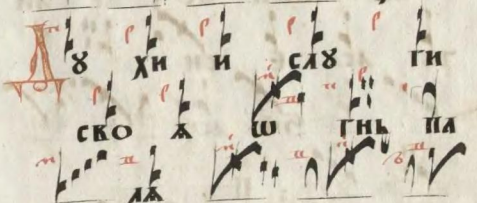 Дꙋ хи и слꙋ ги
сво ѧ ѡ гнь па
лѧ